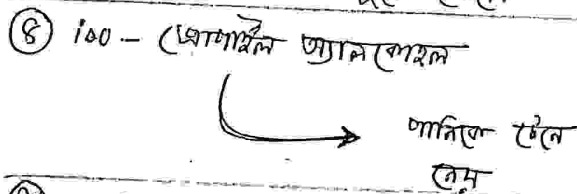 ⑧ iso - প্রোপাইল অ্যালকোহল
পানিকে টেনে
নেয়